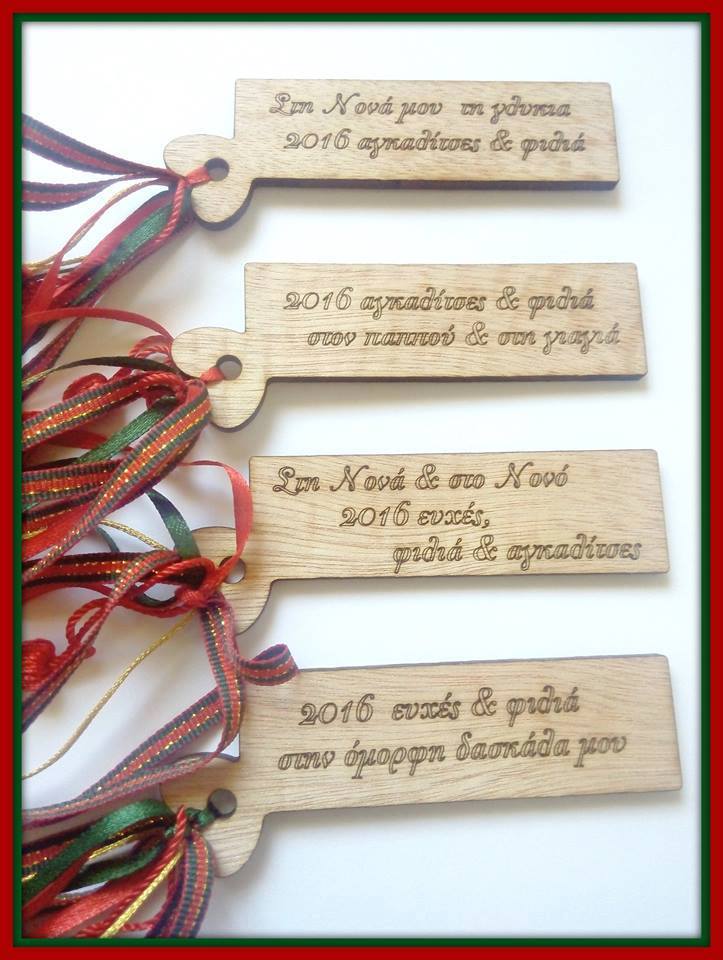 Στη Νονά μου τη γλυκια
2016 αγκαλίτσες & φιλιά
2016 αγκαλίτσες & φιλιά
στον παππού & στη γιαγιά
Στη Νονά & στο Νονό
2016 ευχές,
φιλιά & αγκαλίτσες
2016 ευχές & φιλιά
στην όμορφη δασκάλα μου